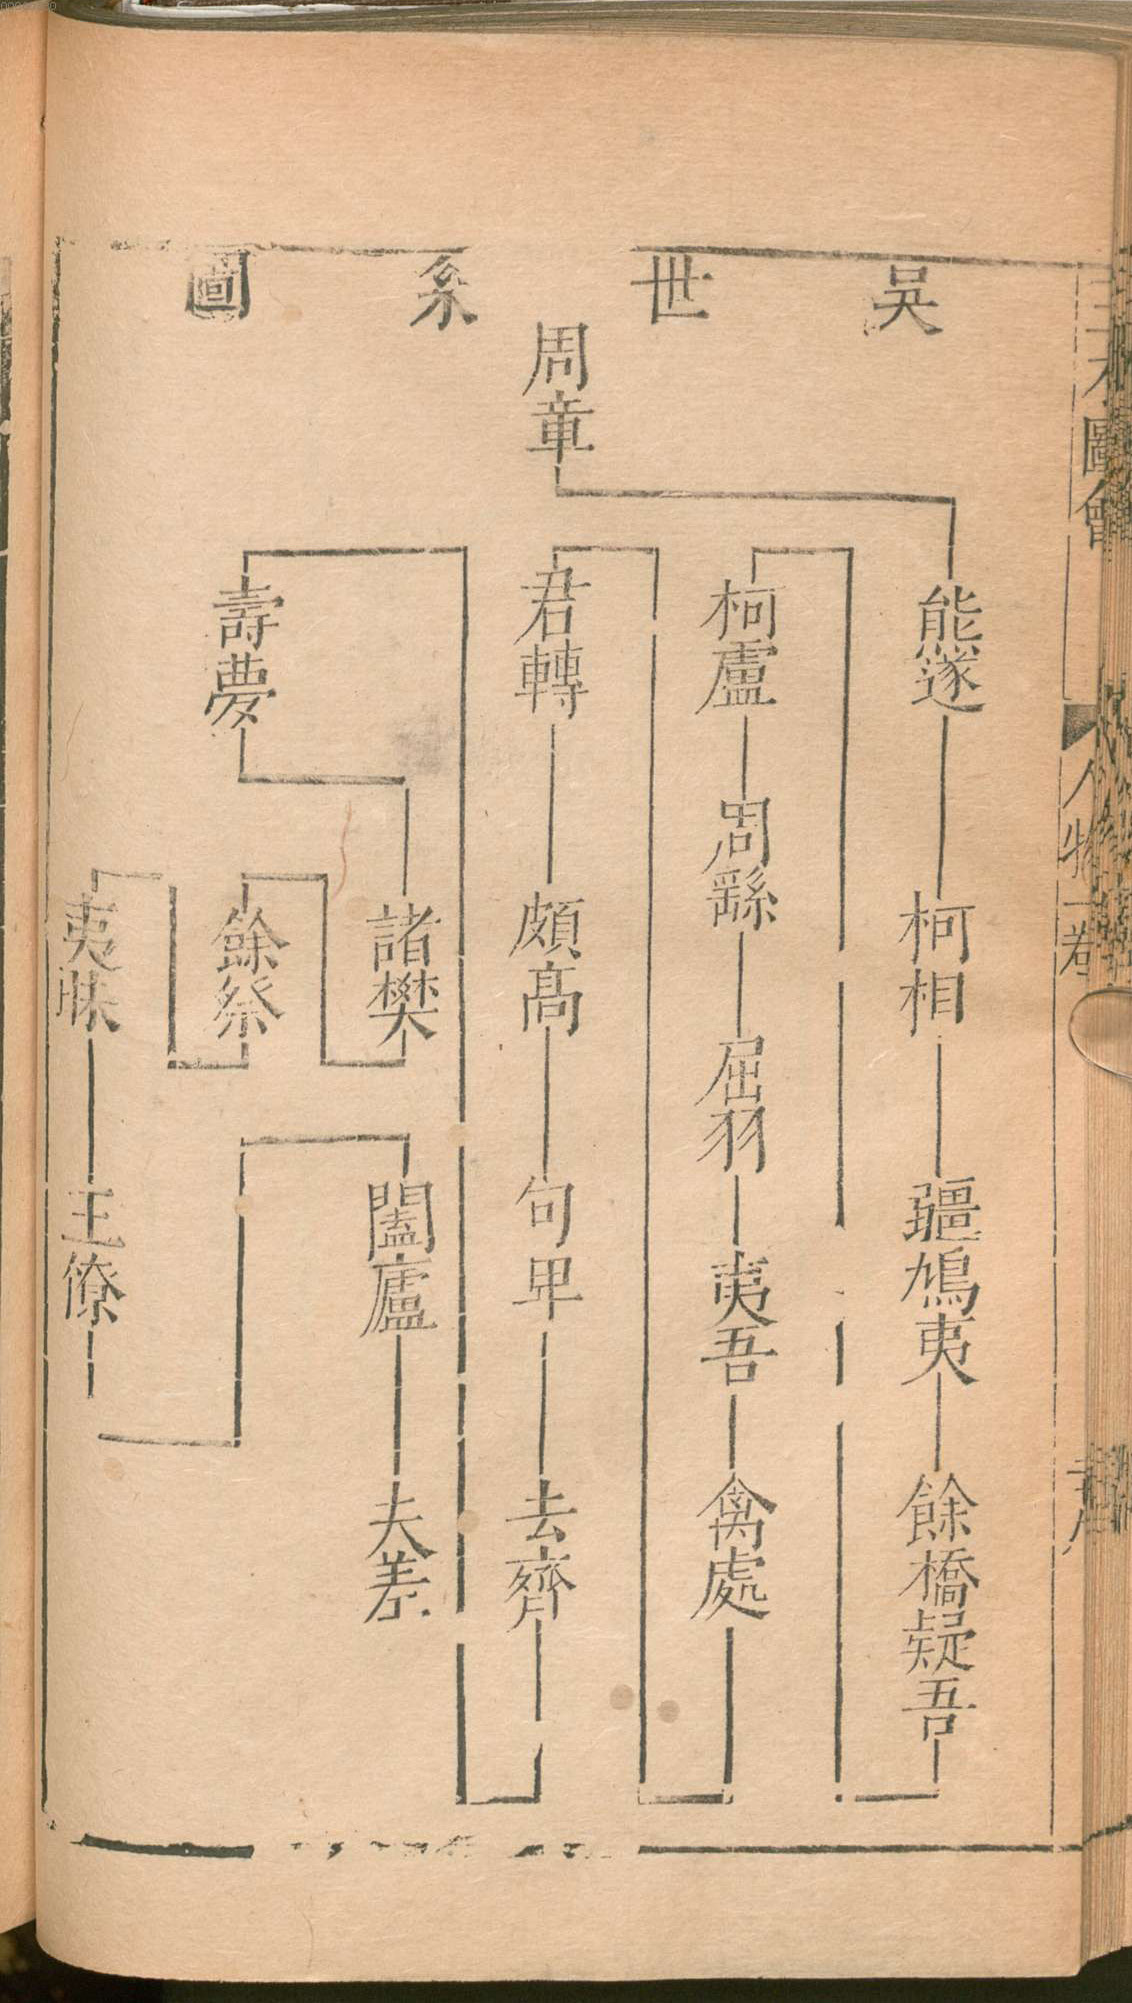 吳世系圖
周章
熊遂
柯相
彊鳩夷
餘橋疑吾
柯盧
周繇
屈羽
夷吾
禽處
君轉
頗高
句卑
去齊
壽夢
諸樊
餘祭
夷昧
王僚
闔廬
夫差
圖會
人物一卷